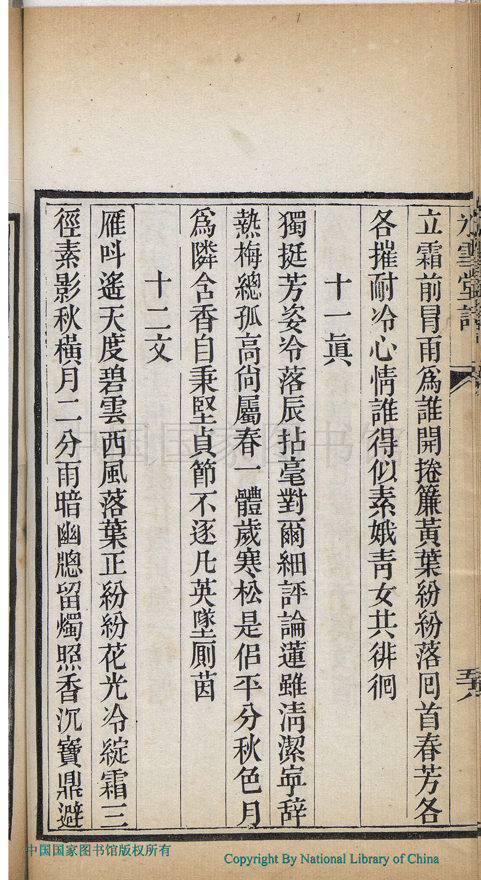 冰雪堂詩
立霜前冐雨爲誰開捲簾黃葉紛紛落囘首春芳各
各摧耐冷心情誰得似素娥靑女共徘徊
十一眞
獨挺芳姿冷落辰拈毫對爾細評論蓮雖淸潔寧辭
熱梅總孤高尙屬春一體歲寒松是侶平分秋色月
爲隣含香自秉堅貞節不逐凡英墜厠茵
十二文
雁呌遙天度碧雲西風落葉正紛紛花光冷綻霜三
徑素影秋橫月二分雨暗幽牕留燭照香沉寶鼎避
中国国家图书馆
中国国家图书馆版权所有
Copyright By National Library of China